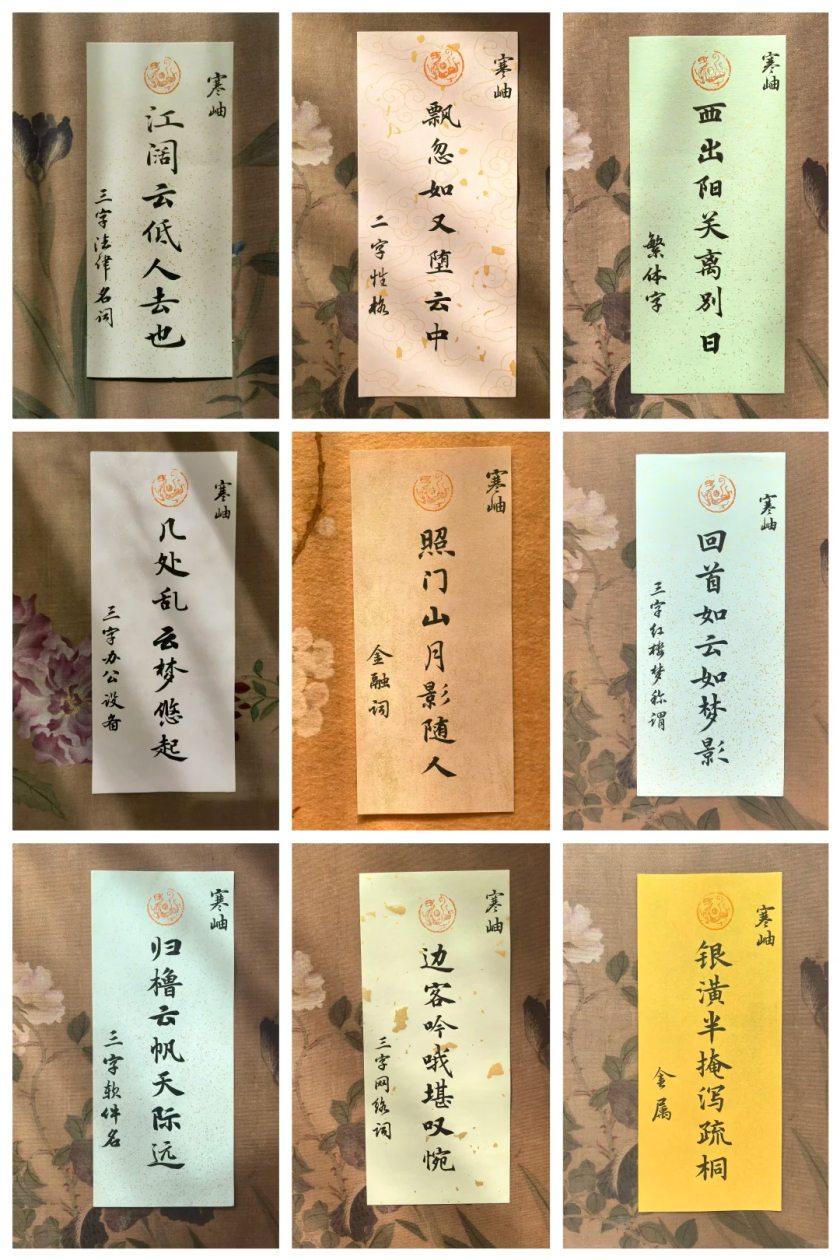 寒岫
江阔云低人去也
三字法律名词
寒岫
飘忽如又堕云中
二字性格
寒岫
西出阳关离别日
繁体字
寒岫
几处乱云梦悠起
三字办公设备
寒岫
照门山月影随人
金融词
寒岫
回首如云如梦影
三字红楼梦称谓
寒岫
归橹云帆天际远
三字软件名
寒岫
边客吟哦堪叹惋
三字网络词
寒岫
银潢半掩泻疏桐
金属